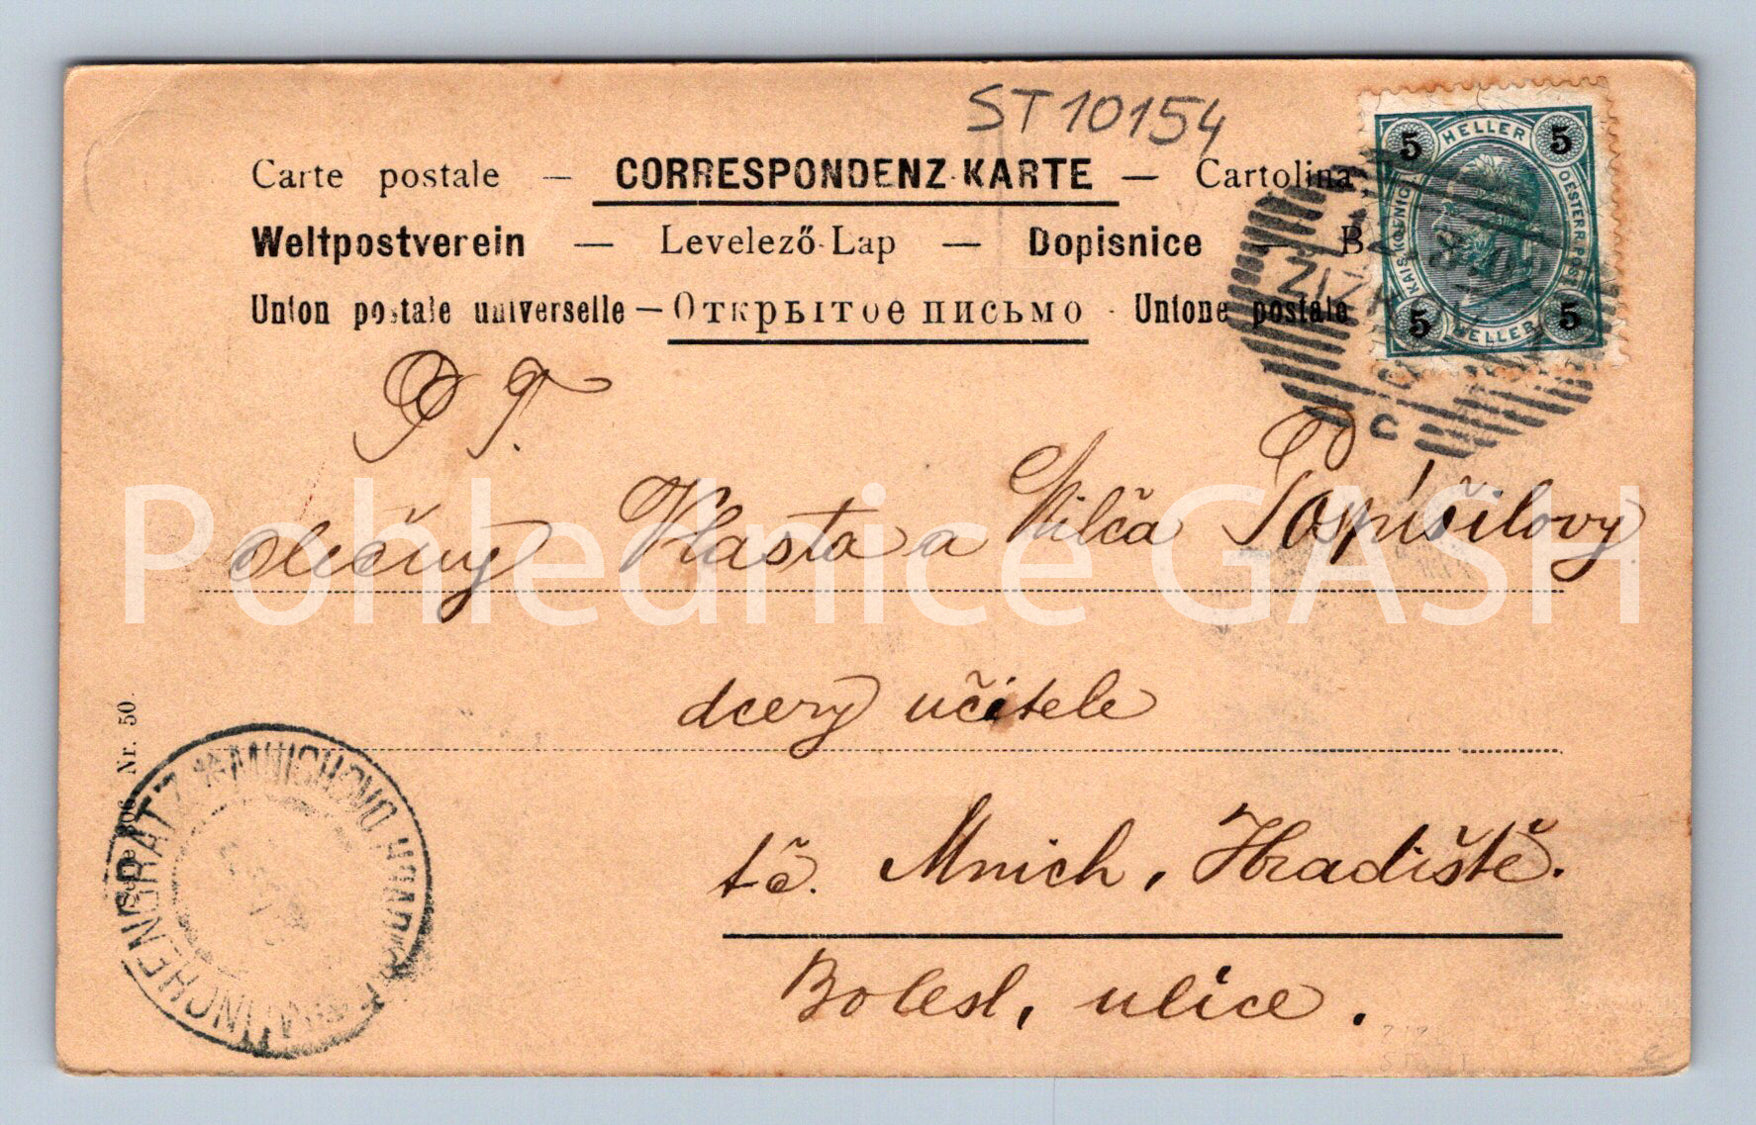 ST10154
Carte postale — CORRESPONDENZ-KARTE — Cartolina
Weltpostverein — Levelező-Lap — Dopisnice — B
Union postale universelle — Открытое письмо - Unione postale
5 HELLER 5
KAIS. KOENIGL. OESTERR. POST
5 HELLER 5
C
P. T.
slečny Vlasta a Milča Pospíšilovy
dcery učitele
tč. Mnich. Hradiště.
Bolesl. ulice.
Nr. 50.
MNICHOVO HRADIŠTĚ
MÜNCHENGRATZ
Pohlednice GASH